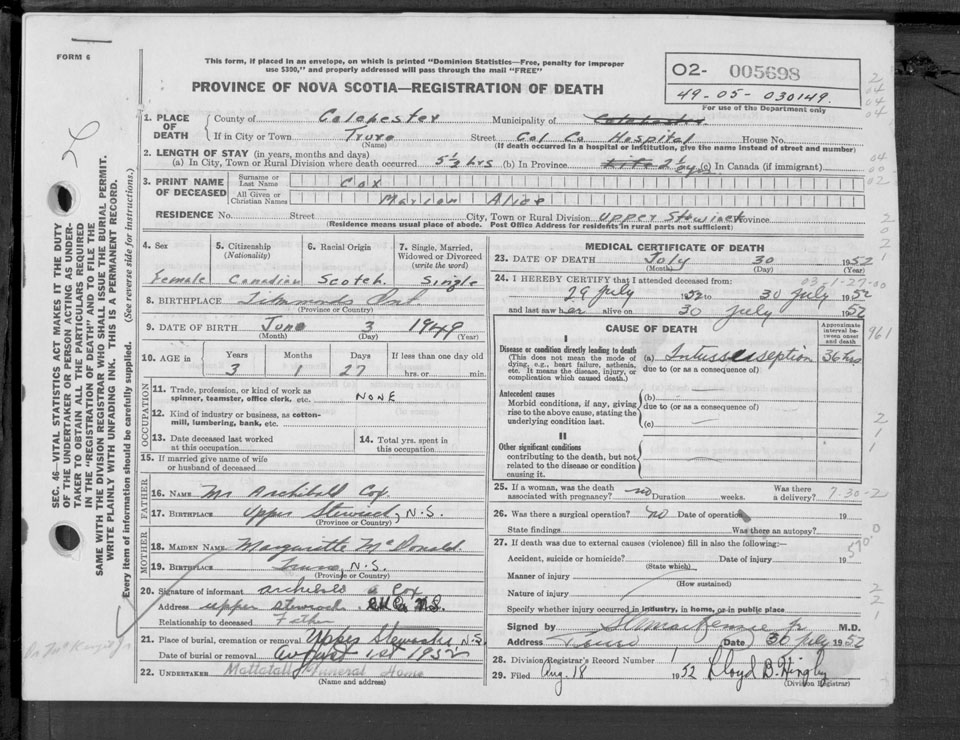 FORM 6
This form, if placed in an envelope, on which is printed "Dominion Statistics—Free, penalty for improper
use $300," and properly addressed will pass through the mail "FREE"
PROVINCE OF NOVA SCOTIA—REGISTRATION OF DEATH
O2- 005698
49-05-030149.
For use of the Department only
SEC. 46—VITAL STATISTICS ACT MAKES IT THE DUTY
OF THE UNDERTAKER OR PERSON ACTING AS UNDER-
TAKER TO OBTAIN ALL THE PARTICULARS REQUIRED
IN THE "REGISTRATION OF DEATH" AND TO FILE THE
SAME WITH THE DIVISION REGISTRAR WHO SHALL ISSUE THE BURIAL PERMIT.
WRITE PLAINLY WITH UNFADING INK. THIS IS A PERMANENT RECORD.
Every item of information should be carefully supplied. (See reverse side for instructions.)
1. PLACE OF DEATH County of Colchester Municipality of
If in City or Town Truro Street Col Co Hospital House No.
(Name) (If death occurred in a hospital or institution, give the name instead of street and number)
2. LENGTH OF STAY (in years, months and days)
(a) In City, Town or Rural Division where death occurred 5½ hrs (b) In Province Life (c) In Canada (if immigrant)
3. PRINT NAME OF DECEASED Surname or Last Name Cox
All Given or Christian Names Marion Alice
RESIDENCE No. Street City, Town or Rural Division Upper Stewiack Province
(Residence means usual place of abode. Post Office Address for residents in rural parts not sufficient)
4. Sex 5. Citizenship (Nationality) 6. Racial Origin 7. Single, Married, Widowed or Divorced (write the word)
Female Canadian Scotch Single
8. BIRTHPLACE
(Province or Country)
9. DATE OF BIRTH June 3 1949
(Month) (Day) (Year)
10. AGE in Years Months Days If less than one day old
3 1 27 hrs. or min.
OCCUPATION
11. Trade, profession, or kind of work as
spinner, teamster, office clerk, etc. NONE
12. Kind of industry or business, as cotton-
mill, lumbering, bank, etc.
13. Date deceased last worked at this occupation 14. Total yrs. spent in this occupation
15. If married give name of wife
or husband of deceased
FATHER
16. NAME Mr Archibald Cox.
17. BIRTHPLACE Upper Stewiack, N.S.
(Province or Country)
MOTHER
18. MAIDEN NAME Margarette McDonald
19. BIRTHPLACE Truro, N.S.
(Province or Country)
20. Signature of informant Archibald Cox
Address upper stewiack
Relationship to deceased Father
21. Place of burial, cremation or removal Upper Stewiacke N.S.
Date of burial or removal August 1st 1952
22. UNDERTAKER Mattatall Funeral Home
(Name and address)
MEDICAL CERTIFICATE OF DEATH
23. DATE OF DEATH July 30 1952
(Month) (Day) (Year)
24. I HEREBY CERTIFY that I attended deceased from:
29 July 1952 to 30 July 1952
and last saw her alive on 30 July 1952
CAUSE OF DEATH Approximate interval between onset and death
I
Disease or condition directly leading to death
(This does not mean the mode of
dying, e.g., heart failure, asthenia,
etc. It means the disease, injury, or
complication which caused death.)
(a) Intussusception 36 hrs
due to (or as a consequence of)
Antecedent causes
Morbid conditions, if any, giving
rise to the above cause, stating the
underlying condition last.
(b)
due to (or as a consequence of)
(c)
II
Other significant conditions
contributing to the death, but not
related to the disease or condition
causing it.
961
25. If a woman, was the death
associated with pregnancy? no Duration weeks. Was there a delivery? 7-30-2
26. Was there a surgical operation? no Date of operation 19
State findings Was there an autopsy?
27. If death was due to external causes (violence) fill in also the following:
Accident, suicide or homicide? Date of injury 19
(State which)
Manner of injury
(How sustained)
Nature of injury
Specify whether injury occurred in industry, in home, or in public place
Signed by M.D.
Address Truro Date 30 July 1952
28. Division Registrar's Record Number 1
29. Filed Aug. 18 1952
(Division Registrar)